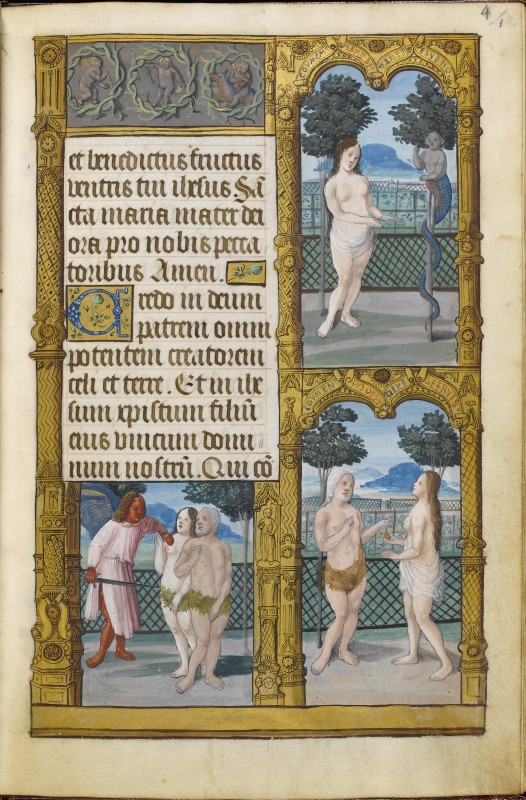 4
et benedictus fructus
ventris tui ihesus Sã
cta maria mater dei
ora pro nobis pecca
toribus Amen.
Credo in deum
patrem omni
potentem creatorem
celi et terre. Et in ihe
sum xpistum filiũ
eius vnicum domi
num nostrũ. Qui cõ